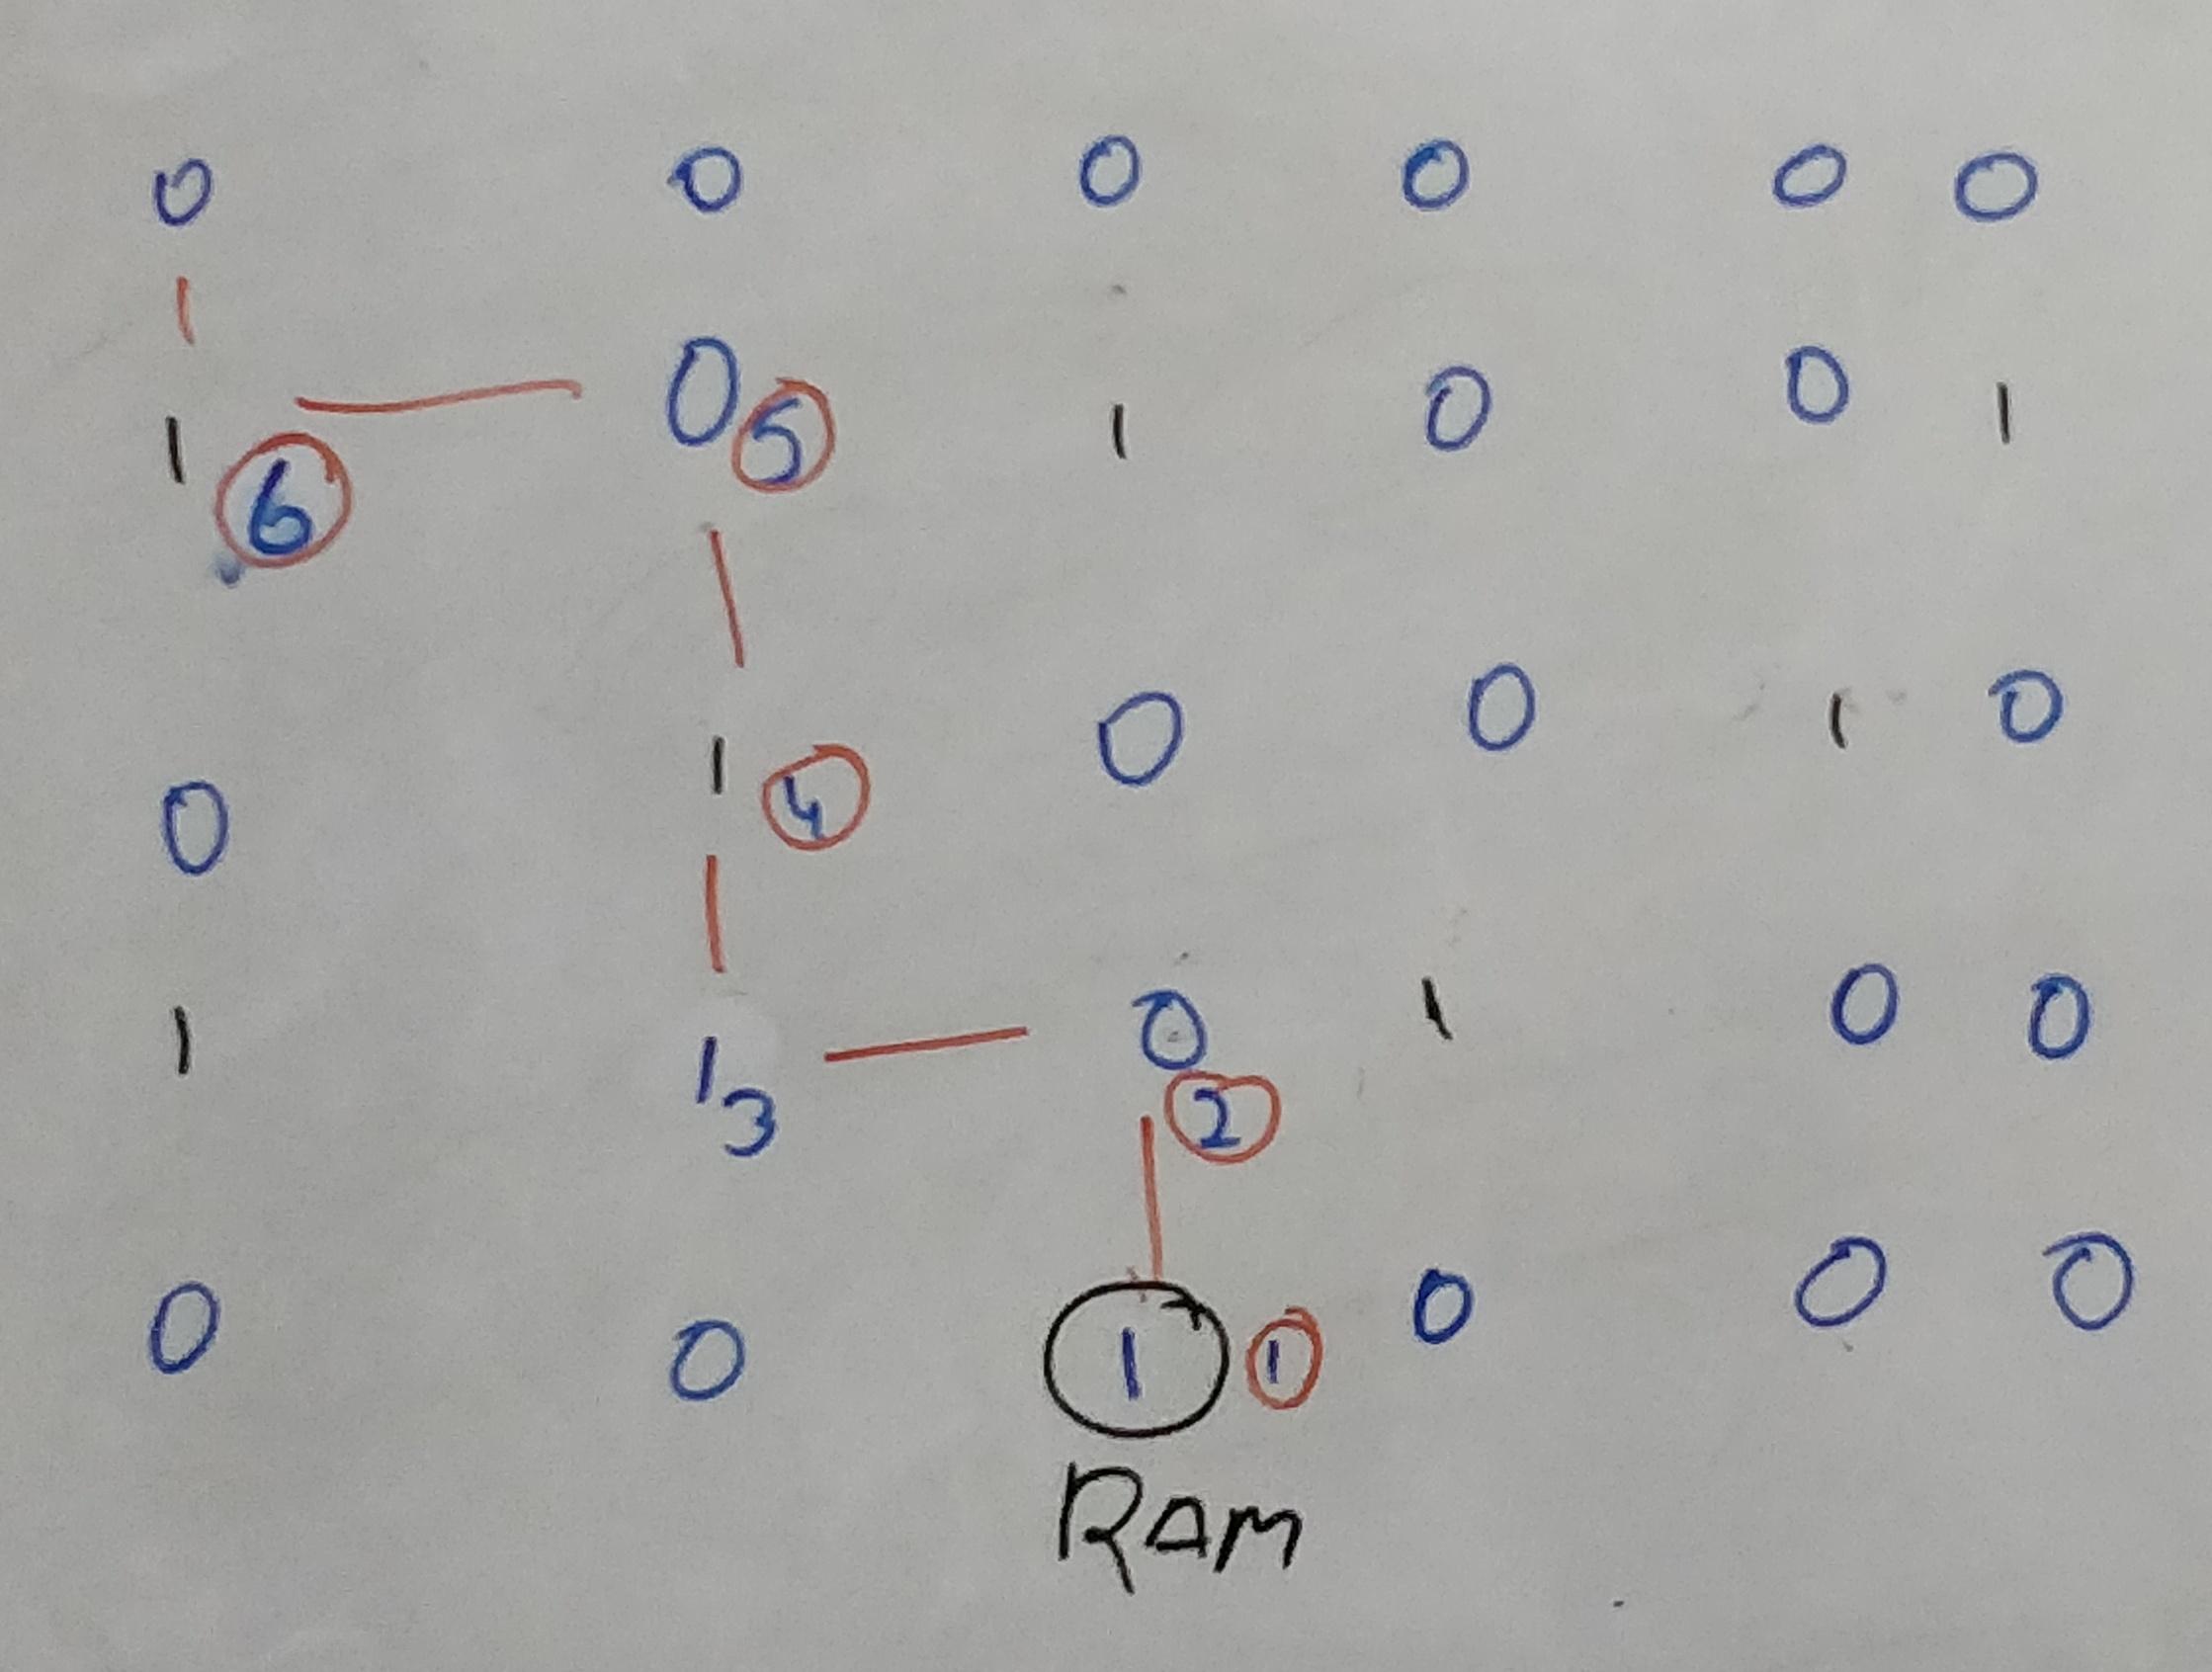 0 0 0 0 0 0
1 6 0 5 1 0 0 1
0 1 4 0 0 1 0
1 1 3 0 2 1 0 0
0 0 1 1 0 0 0
RAM